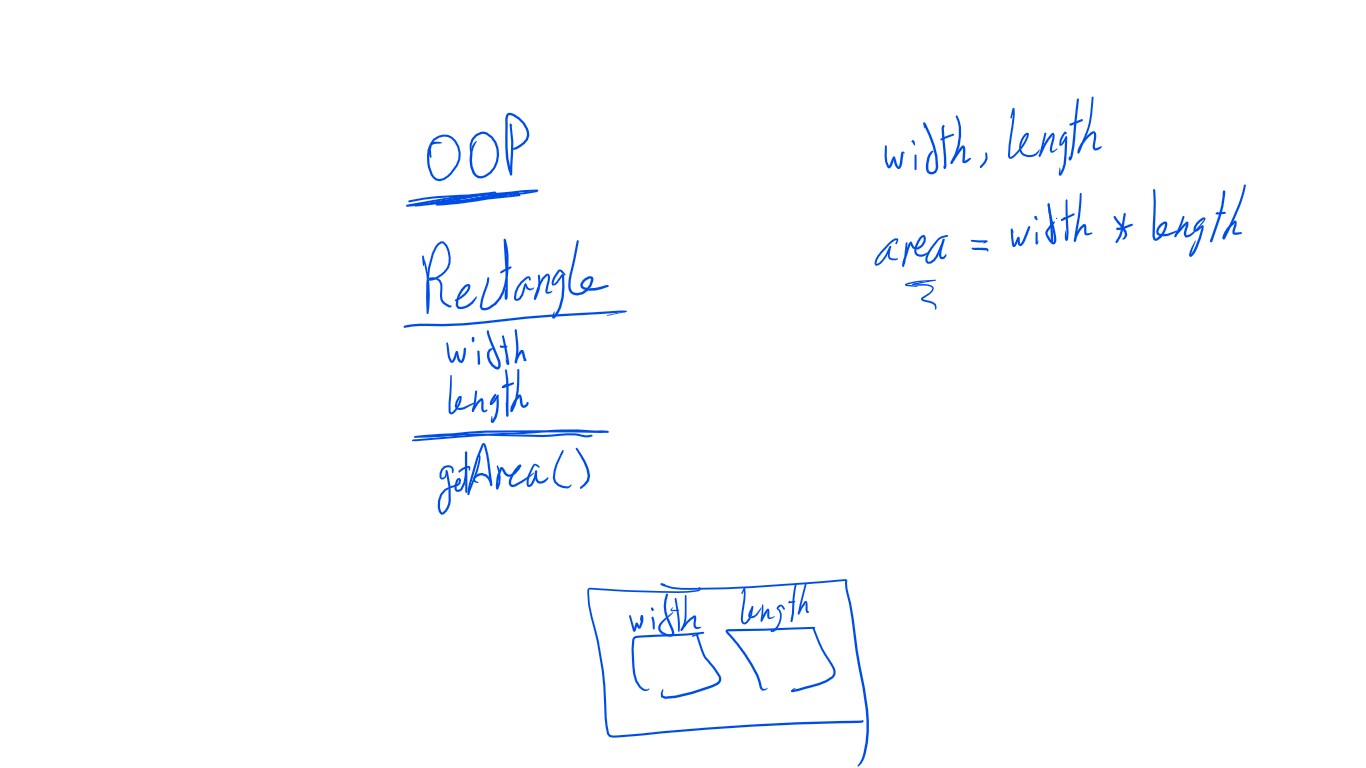 OOP
Rectangle
width
length
getArea()
width, length
area = width * length
width length